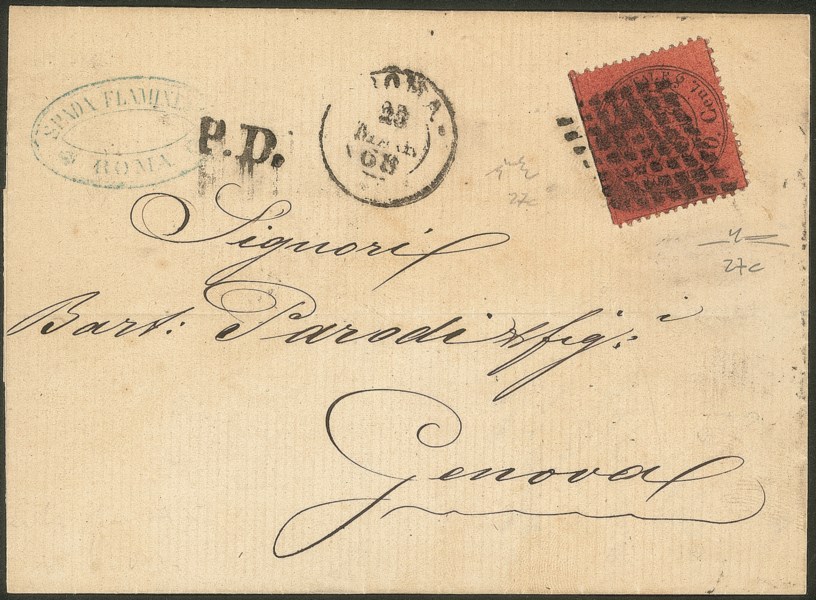 SPADA FLAMINI
ROMA
P.D.
ROMA
23
68
Cent.
27c
27c
Signori
Bart: Parodi & fig:i
Genova